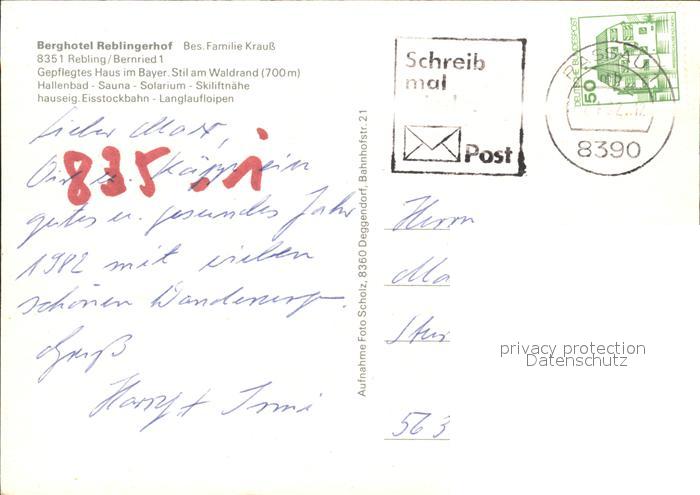 Berghotel Reblingerhof Bes. Familie Krauß
8351 Rebling/Bernried 1
Gepflegtes Haus im Bayer. Stil am Waldrand (700 m)
Hallenbad - Sauna - Solarium - Skiliftnähe
hauseig. Eisstockbahn - Langlaufloipen
Lieber Mart,
835
ein
gutes u. gesundes Jahr
1982 mit vielen
schönen Wanderungen.
Gruß
Harry + Irmi
Aufnahme Foto Scholz, 8360 Deggendorf, Bahnhofstr. 21
Schreib
mal
Post
DEUTSCHE BUNDESPOST
50
PASSAU
8390
Herrn
Ma
563
privacy protection
Datenschutz